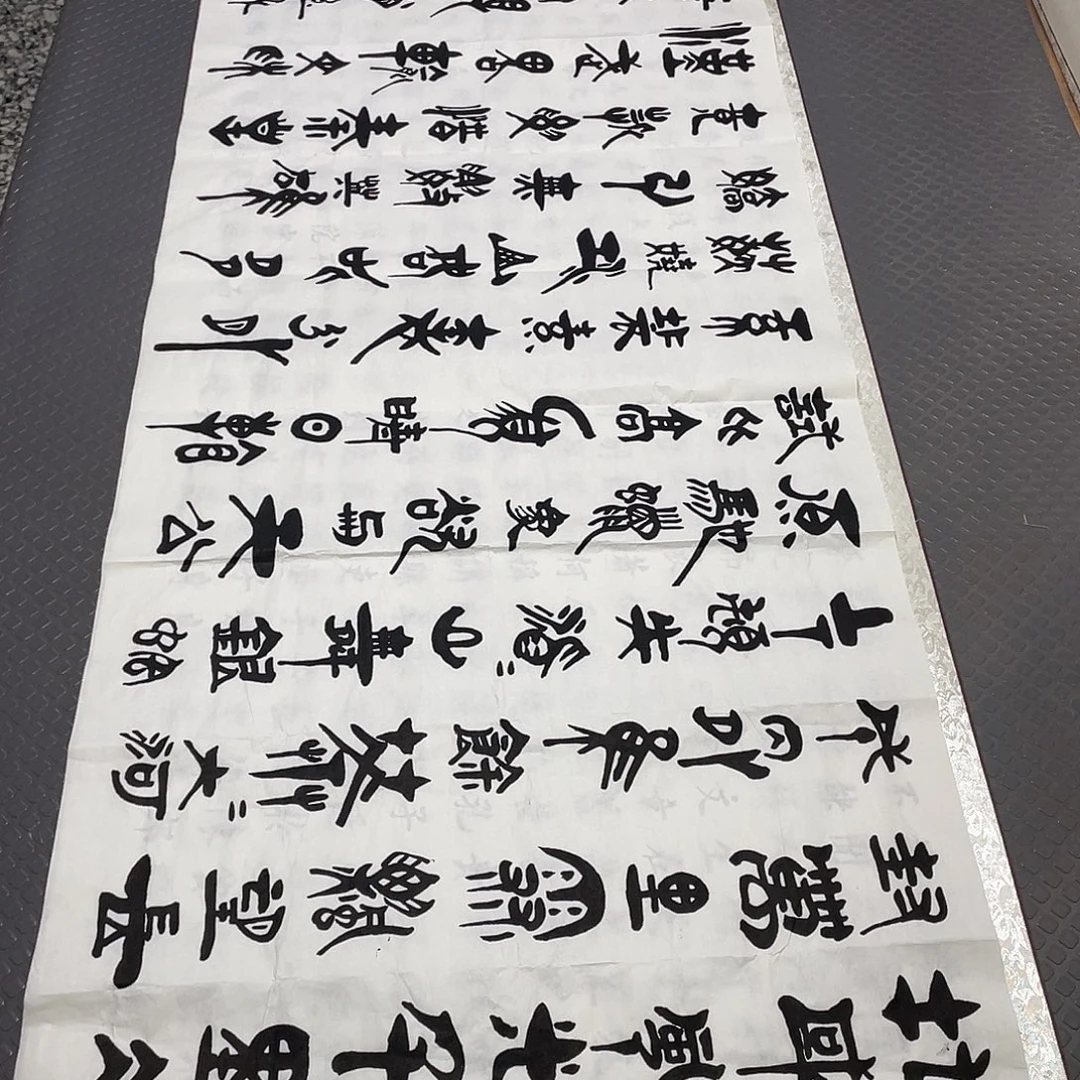 北國風光千里冰
封萬里雪飄望長
城內外惟餘莽〃大河
上下頓失滔〃山舞銀蛇
原馳蠟象欲與天公
試比高須晴日看
紅裝素裹分外
妖嬈江山如此多
嬌引無數英雄
競折腰惜秦皇